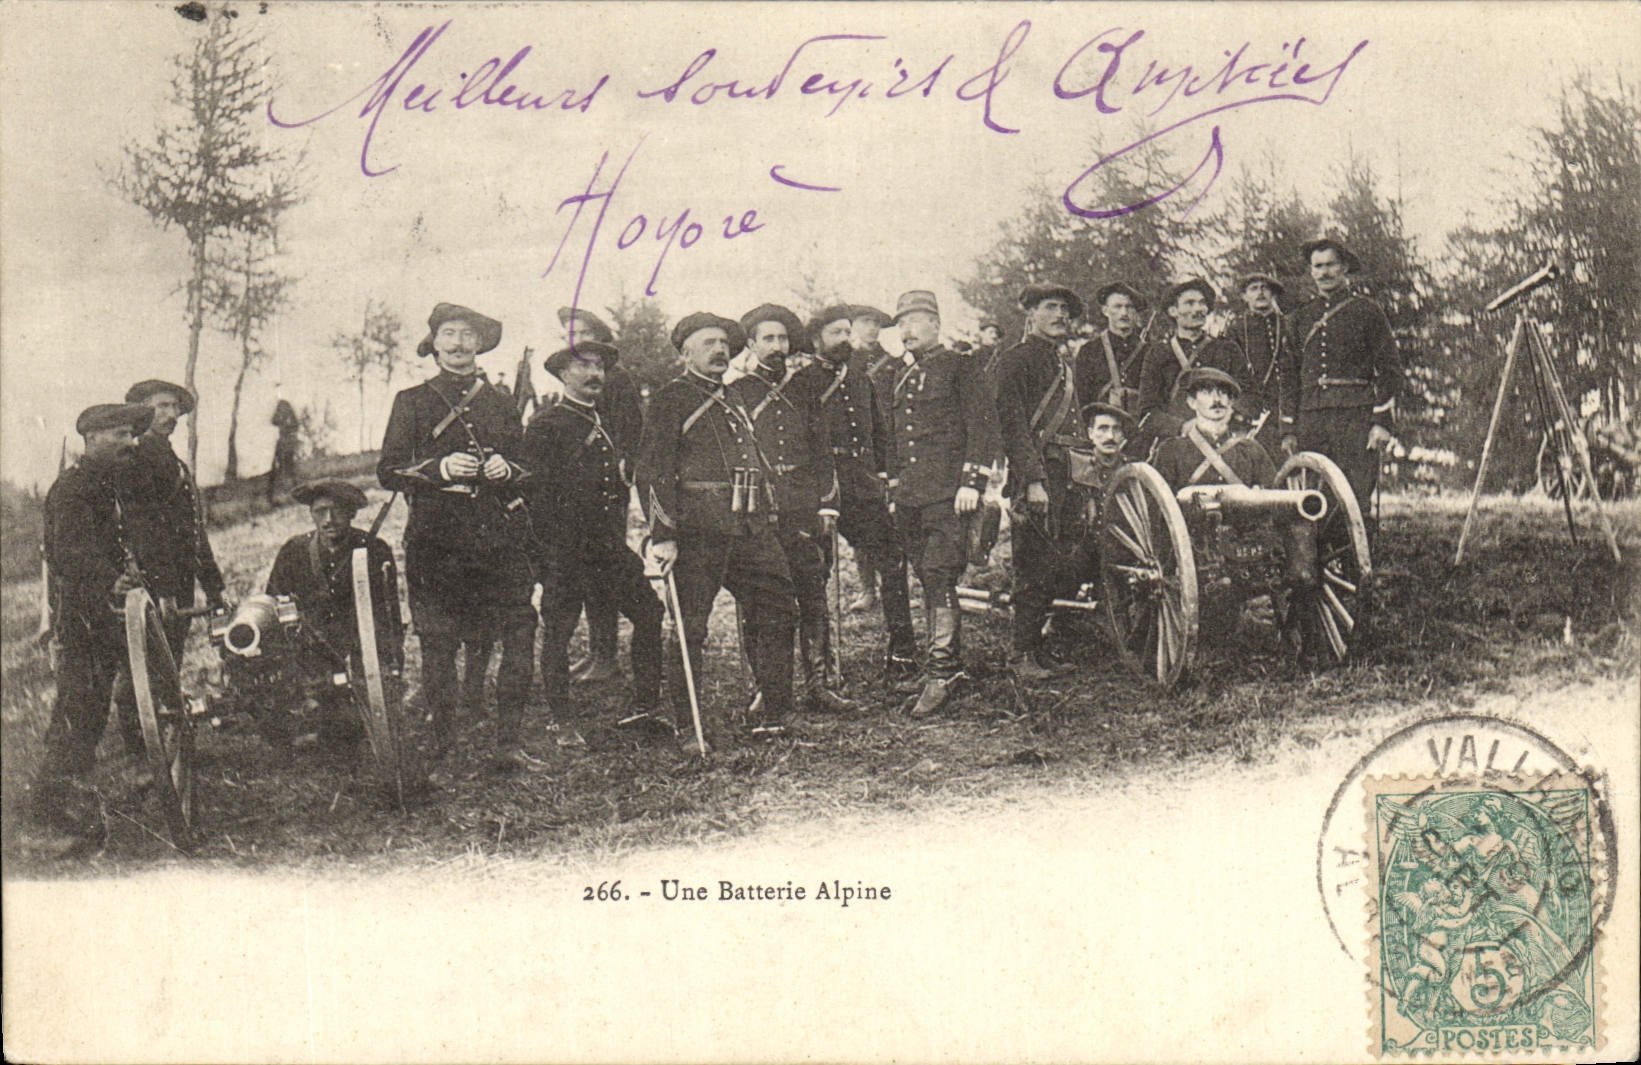 Meilleurs souvenirs & Amitiés
266. - Une Batterie Alpine
VALL
AL
SEPT
5
POSTES